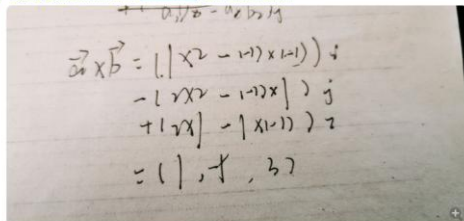 a⃗×b⃗ = (1×2 - (-1)×(-1)) i
-(2×2 - (-1)×1) j
+(2×1 - 1×(-1)) z
= (1, -5, 3)